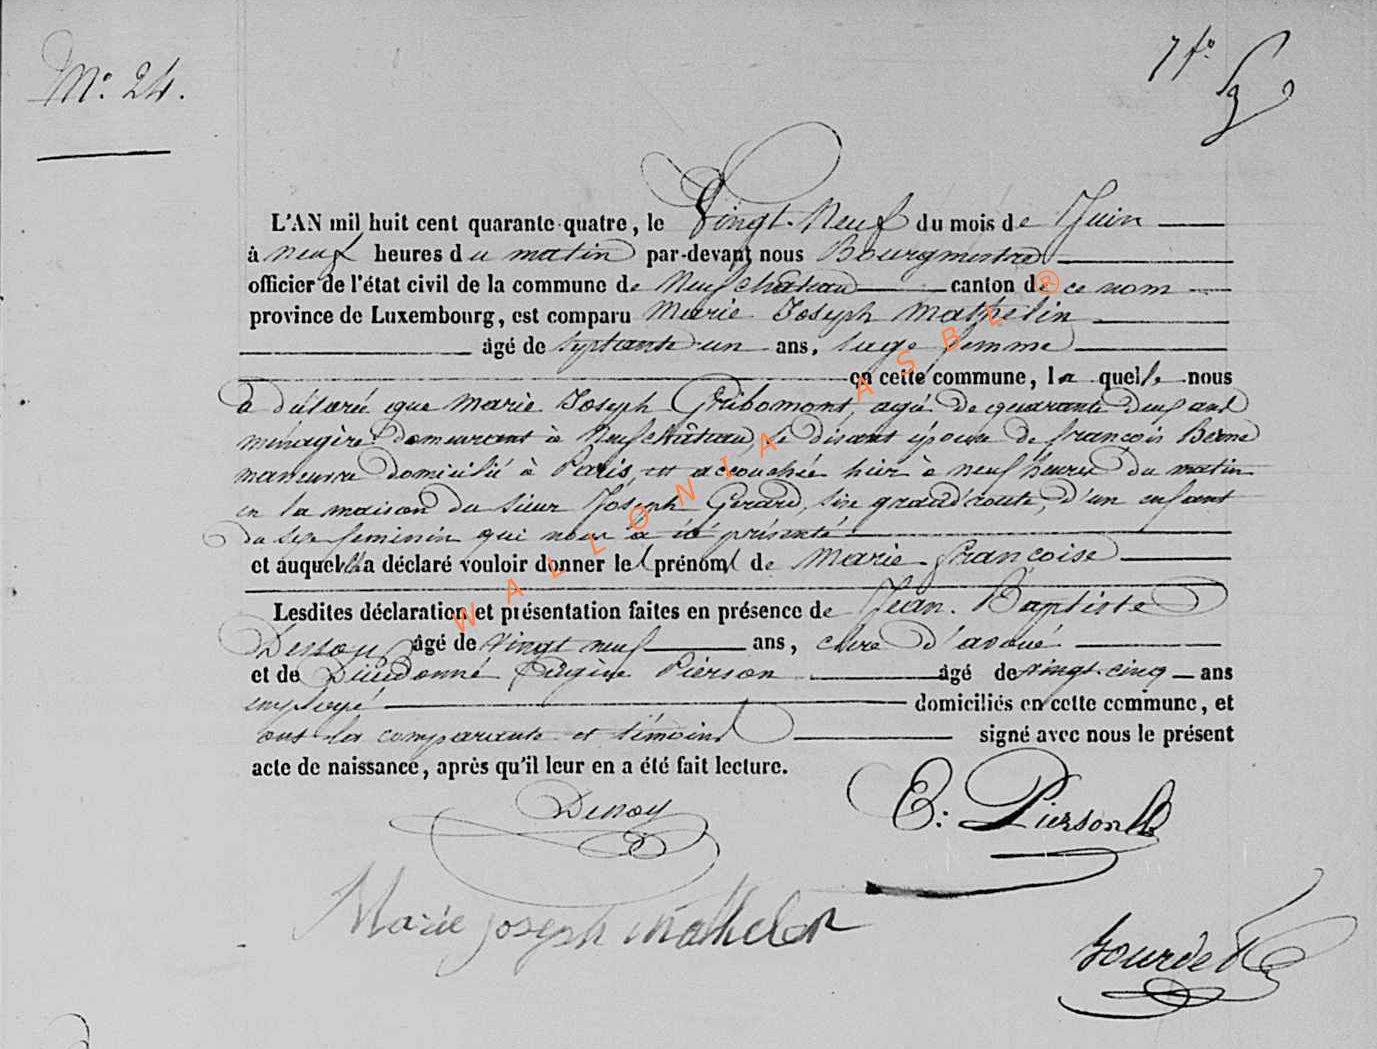 N° 24.
7 f°
L'AN mil huit cent quarante-quatre, le Vingt-Neuf du mois de Juin
à neuf heures du matin par-devant nous Bourgmestre
officier de l'état civil de la commune de Neufchâteau canton de ce nom
province de Luxembourg, est comparu Marie Joseph Mathelin
âgé de septante un ans, sage femme
en cette commune, laquelle nous
a déclaré que Marie Joseph Gribomont, agée de quarante deux ans
menagère demeurant à Neufchâteau, se disant épouse de françois
manœuvre domicilié à Paris, est accouchée hier à neuf heures du matin
en la maison du sieur Joseph Gerard, sise grand'route, d'un enfant
du sexe feminin qui nous a été présenté
et auquel elle a déclaré vouloir donner le prénom de Marie françoise
Lesdites déclaration et présentation faites en présence de Jean-Baptiste
Dessoy âgé de vingt neuf ans, clerc d'avoué
et de Dieudonné Eugène Pierson âgé de vingt-cinq ans
employé domiciliés en cette commune, et
ont la comparante et témoins signé avec nous le présent
acte de naissance, après qu'il leur en a été fait lecture.
Dessoy
E: Pierson
Marie joseph mathelin
Gourdet
WALLONIA ASBL ®